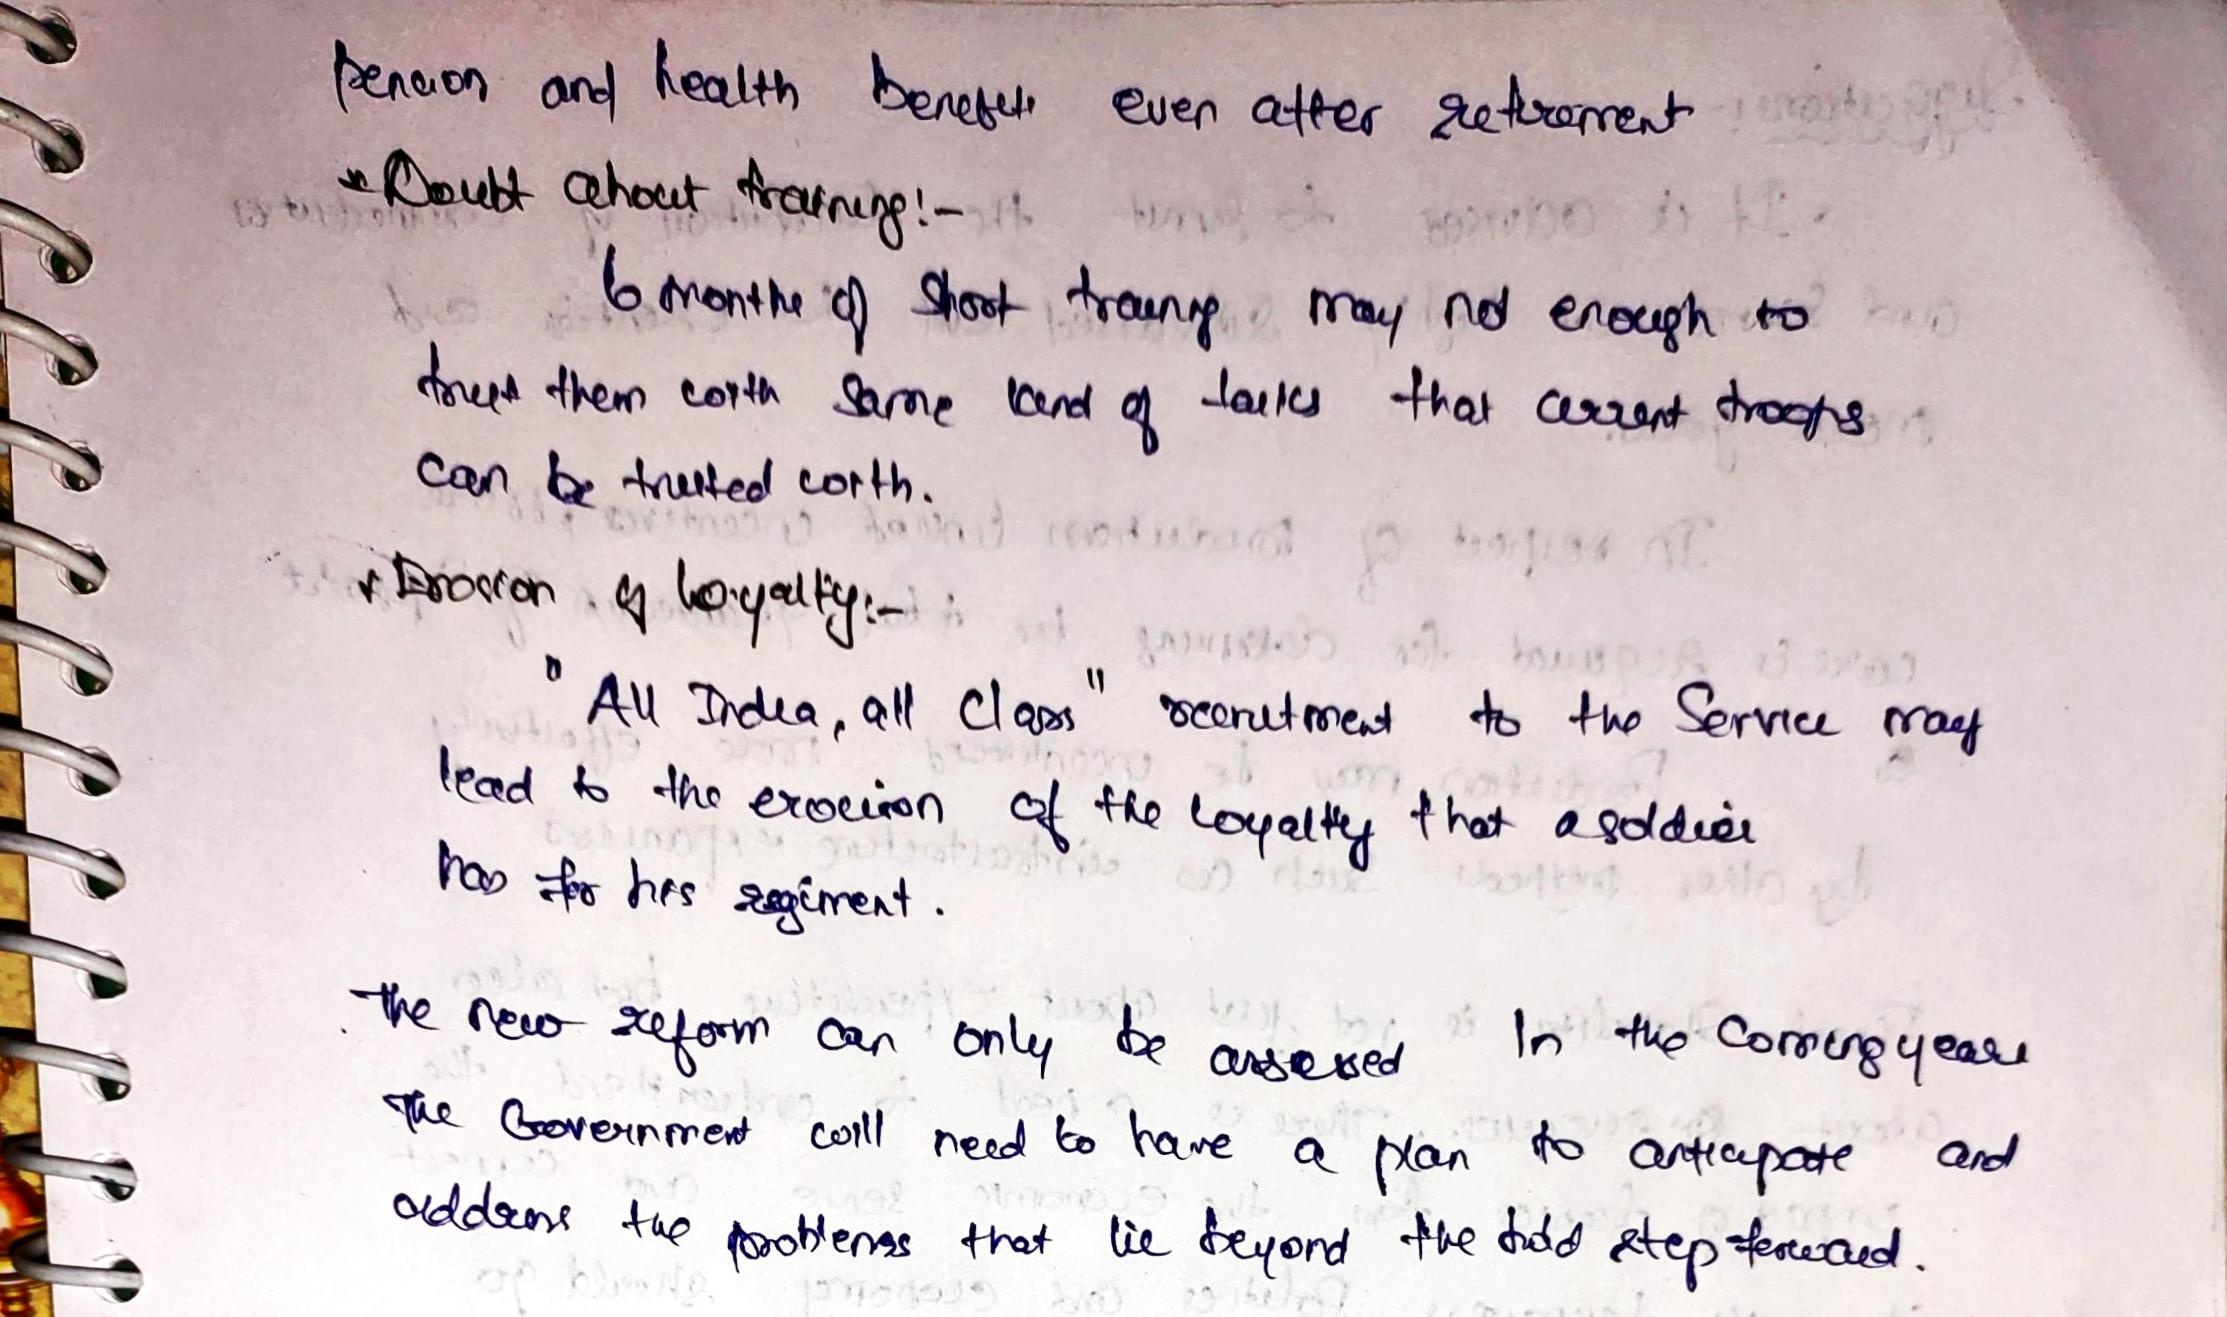 pension and health benefits even after retirement
* Doubt about training:-
6 months of short training may not enough to
trust them with same kind of tasks that current troops
can be trusted with.
* Erosion of loyalty:-
"All India, all class" recruitment to the service may
lead to the erosion of the loyalty that a soldier
has for his regiment.
The new reform can only be assessed in the coming years
The Government will need to have a plan to anticipate and
address the problems that lie beyond the bold step forward.